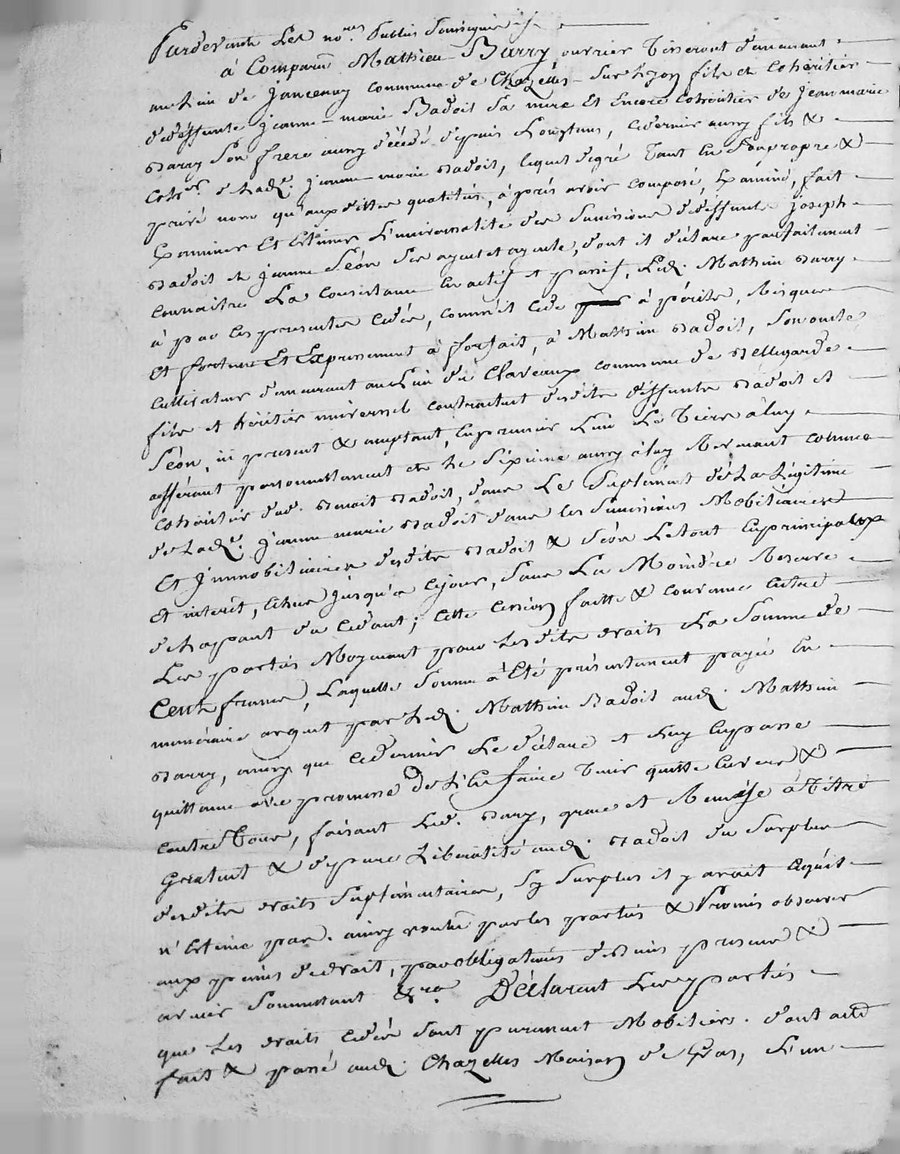 Pardevant Les no.res Publics Soussignés
à Comparu Mathieu Barry, ouvrier Tisserant demeurant
au Lieu de Jancenay commune de Chazelles sur Lyon fils et cohéritier
de deffunte Jeanne marie Badoit Sa mere Et Encore cohéritier de Jean marie
Barry Son frere aussy décédé depuis Longtems, ce dernier aussy fils &
cohér. de Lad.e Jeanne marie Badoit, lequel de gré tant En Son propre &
privé nom qu'aux dittes qualités, après avoir composé, Examiné, fait
Examiner Et Estimer L'universalité des Successions de deffunts Joseph
Badoit et Jeanne Séon Ses ayeul et ayeule, dont il déclare parfaitement
connaitre La consistance En actif et passif, Led. Mathieu Barry
à par ces presentes cédé, comme il cede à périls, Risques
Et fortune Et Expressement à forfait, à Mathieu Badoit, Son oncle
Cultivateur demeurant au Lieu du Claveaux commune de Bellegarde
fils et héritier universel contractuel desdits deffunts Badoit et
Séon, ici present & acceptant, Le premier Lieu Le Tiers à luy
afférant personnellement et Le Sixieme aussy à luy Revenant comme
cohéritier dud. Badoit, dans Le Suplément de La Légitime
de Lad.e Jeanne marie Badoit dans les Successions Mobiliaires
Et Immobiliaires desdits Badoit & Séon Le tout En principaux
et interêt, Echus jusqu'à ce jour, Sans La Moindre Reserve
de La part du cédant; Cette Cession faitte & convenue Entre
Les parties Moyennant pour Lesdits droits La Somme de
Cent francs, Laquelle Somme à Eté présentement payée En
numéraire argent par Led. Mathieu Badoit aud. Mathieu
Barry, ainsy que ce dernier Le déclare et Luy En passe
quittance avec promesse de L'En faire Tenir quitte Envers &
contre Tous, faisant Led. Barry, grace et Remise à Titre
Gratuit & de pure Liberalité aud. Badoit du Surplus
desdits droits Suplémentaires, Sy Surplus il y avait
n'Estime pas. ainsy voulu par les parties & Promis observer
aux peines de droit, par obligations de Biens presens &
avenir Soumettant &.ra Déclarent Les parties
que Les droits cédés Sont purement Mobiliers. dont acte
fait & passé aud. Chazelles Maison de Gras, L'un